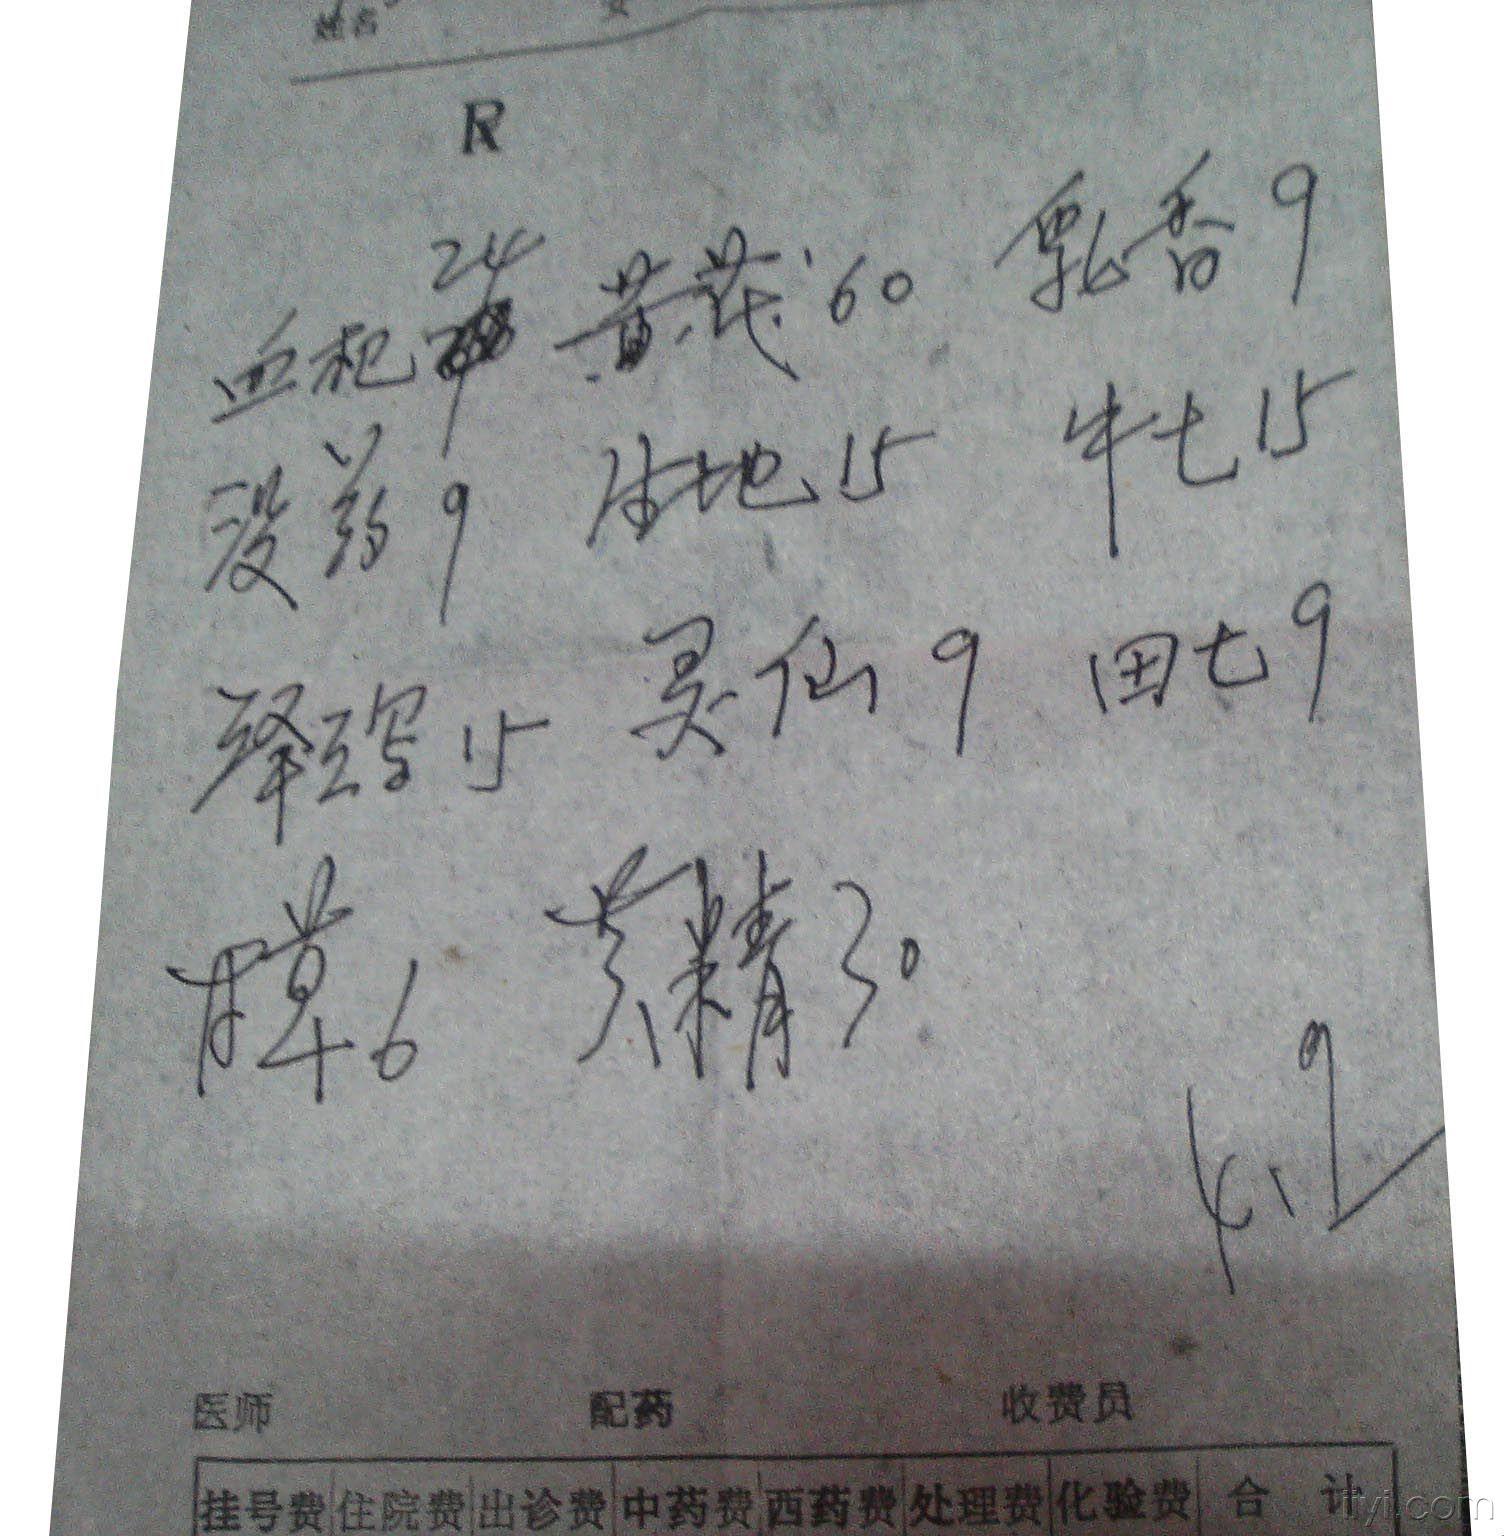 姓名 女
R
血杞 24 黄芪 60 乳香 9
没药 9 生地 15 牛七 15
泽泻 15 灵仙 9 田七 9
甘草 6 黄精 30
医师 配药 收费员
挂号费 住院费 出诊费 中药费 西药费 处理费 化验费 合计
iiyi.com